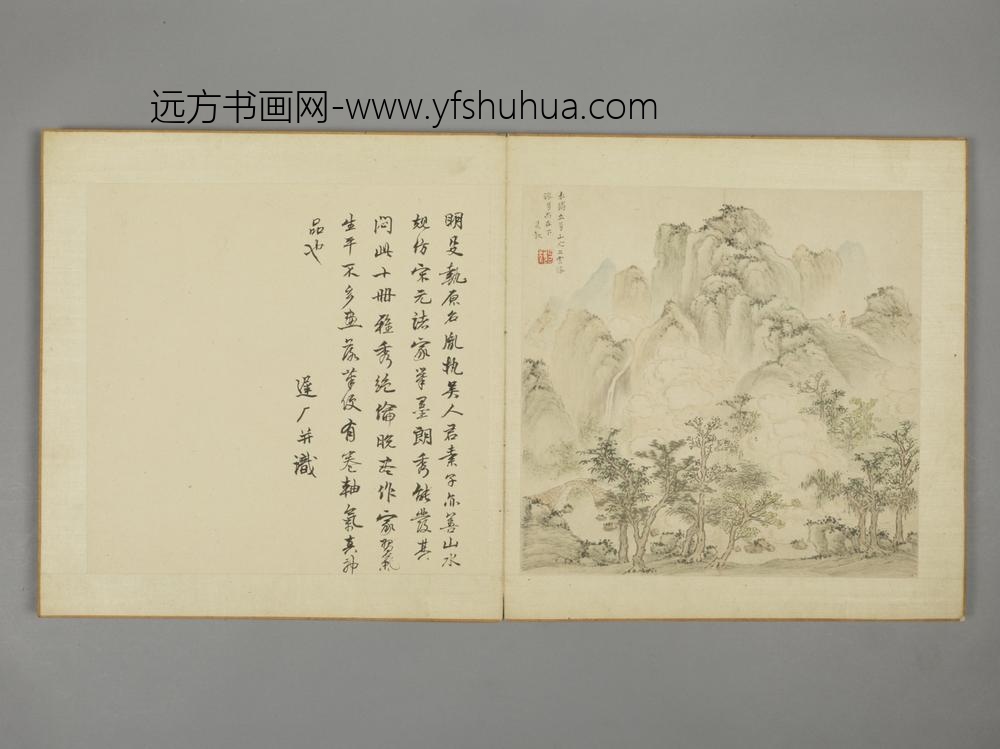 远方书画网-www.yfshuhua.com
明吳執原名胤執吴人君素子亦善山水
規仿宋元法家筆墨朗秀能發其
悶此十冊雅秀绝倫脱去作家習氣
生平不多画落筆便有卷軸氣真神
品也
遲厂并識